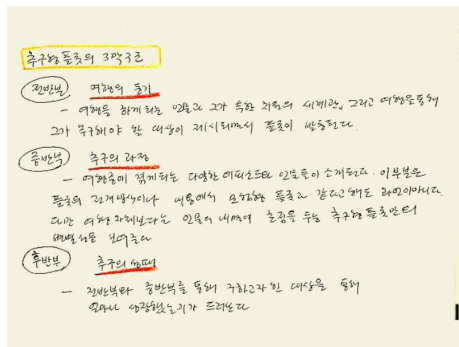 추구형 플롯의 3막구조
전반부 여행의 동기
- 여행을 하게되는 인물과 그가 속한 차원의 세계관, 그리고 여행을통해
그가 추구해야 할 대상이 제시되면서 플롯이 발동된다.
중반부 추구의 과정
- 여행중에 겪게되는 다양한 에피소드와 인물들이 소개된다. 이부분은
플롯의 전개방식이나 내용에서 모험형 플롯과 같다고해도 과언이아니다.
다만 여행 자체보다는 인물의 내면에 초점을 두는 추구형 플롯만의
변별성을 보여준다
후반부 추구의
- 전반부와 중반부를 통해 구하고자한 대상을 통해
얼마나 성장했는지가 드러난다